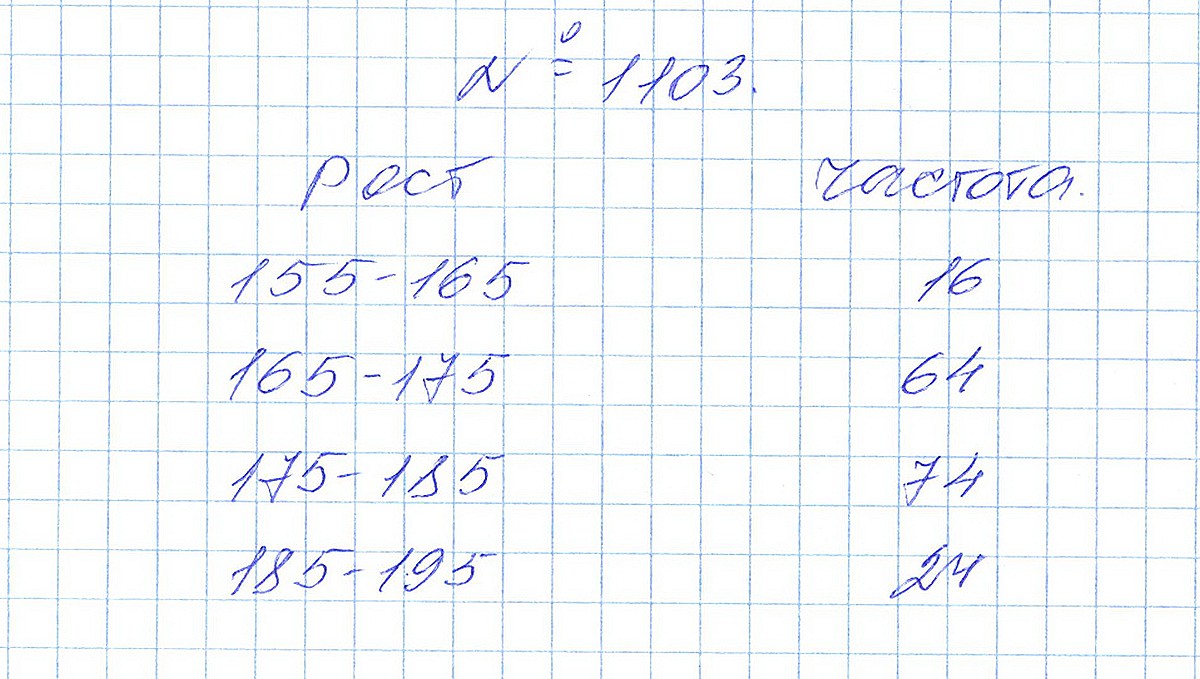 № 1103.
Рост Частота.
155-165 16
165-175 64
175-185 74
185-195 24